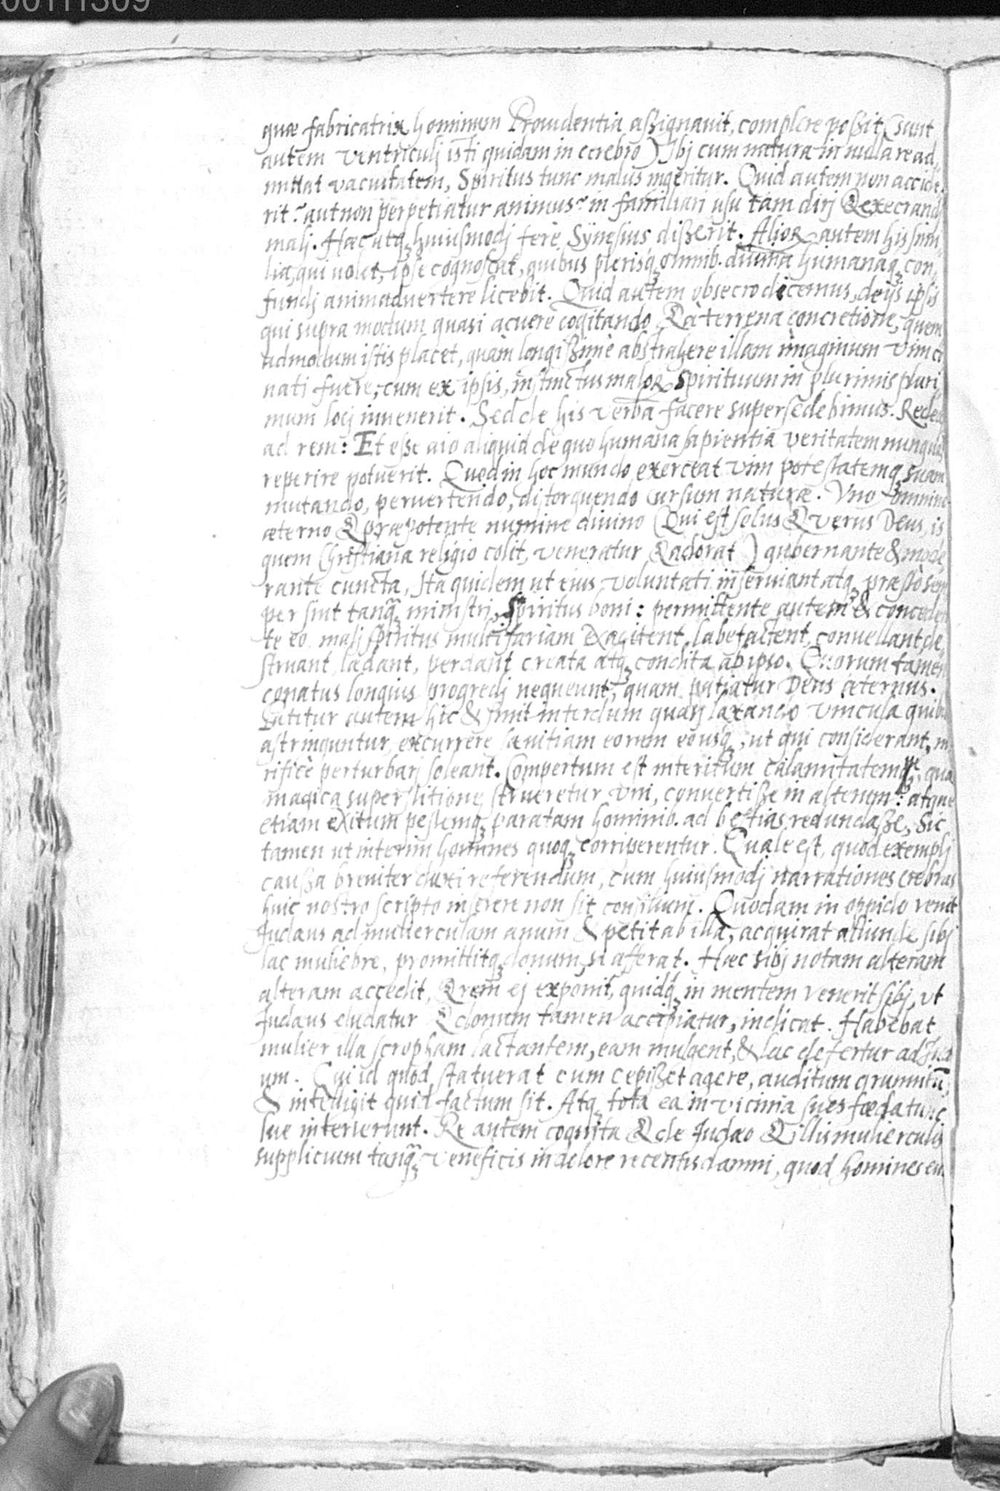 00111309
quæ fabricatrix hominum Prouidentia aßignauit, complere poßit (sunt
autem ventriculj isti quidam in cerebro) Ibj cum natura in nulla re ad,
mittat vacuitatem, Spiritus tunc malus ingeritur. Quid autem non accide,
rit? aut non perpetiatur animus? in familiari usu tam dirj & execrandj
malj. Hæc atq huiusmodj fere Synesius dißerit. Alior autem his simi,
lia, qui volet, ipse cognoscat, quibus plerisq omnib. diuina humanaq con,
fundj animaduertere licebit. Quid autem obsecro dicemus, de ijs ipsis
qui supra modum quasi acuere cogitando, & a terrena concretione, quem
admodum istis placet, quàm longißimè abstrahere illam imaginum vim co
nati fuere, cum ex ipsis, instinctus malor Spirituum in plurimis pluri
mum locj inuenerit. Sed de his verba facere supersedebimus. Redeo
ad rem: Et eße aio aliquid de quo humana sapientia veritatem nunquã
reperire potuerit. Quod in hoc mundo exerceat vim potestatemq suam
mutando, peruertendo, distorquendo cursum naturæ. Vno omnino
æterno & præpotente numine diuino (Qui est solus & verus Deus, is
quem Christiana religio colit, veneratur & adorat) gubernante & mode
rante cuncta, Ita quidem ut eius voluntati inseruiant atq præsto sem
per sint tanq ministrj, Spiritus boni: permittente autem & conceden
te eo malj spiritus multifariam exagitent, labefactent, conuellant, de,
struant, lædant, perdant creata atq condita ab ipso. Quorum tamen
conatus longius progredj nequeunt, quam patiatur Deus æternus.
Patitur autem hic & sinit interdum quasj laxando vincula quibus
astringuntur, excurrere sæuitiam eorum eousq, ut qui considerant, mi
rificè perturbarj soleant. Compertum est interitum calamitatemq, quæ
magica superstitione strueretur vni, conuertiße in alterum: atque
etiam exitum pestemq paratam hominib. ad bestias redundaße, Sic
tamen ut interim homines quoq corriperentur. Quale est, quod exemplj
caußa breuiter duxi referendum, cum huiusmodj narrationes crebras
huic nostro scripto inserere non sit consilium. Quodam in oppido venit
Judæus ad mulierculam anum & petit ab illa, acquirat aliunde sibj
lac muliebre, promittitq donum, si afferat. Hæc sibj notam alteram
alteram accedit, & rem ej exponit, quidq in mentem venerit sibj, vt
Judæus eludatur & donum tamen accipiatur, indicat. Habebat
mulier illa scropham lactantem, eam mulgent, & lac defertur ad Judæ
um. Qui id quod statuerat cum cepißet agere, auditum grunnitũ,
& intelligit quid factum sit. Atq tota ea in vicinia sues fœda tunc
lue interierunt. Re autem cognita & de Judæo & illis mulierculis
supplicium tanq veneficis in dolore recentis damni, quod homines eu